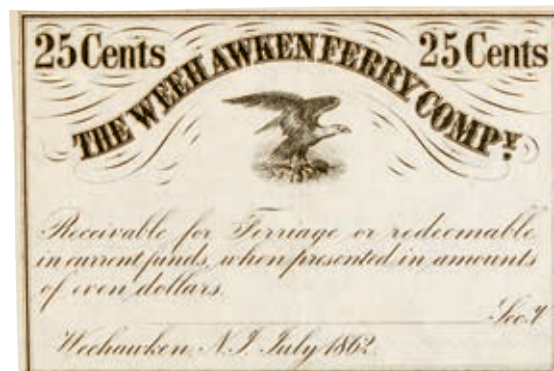 25 Cents 25 Cents
THE WEEHAWKEN FERRY COMPY.
Receivable for Ferriage or redeemable
in current funds, when presented in amounts
of even dollars.
Sec.y
Weehawken, N.J. July 1862